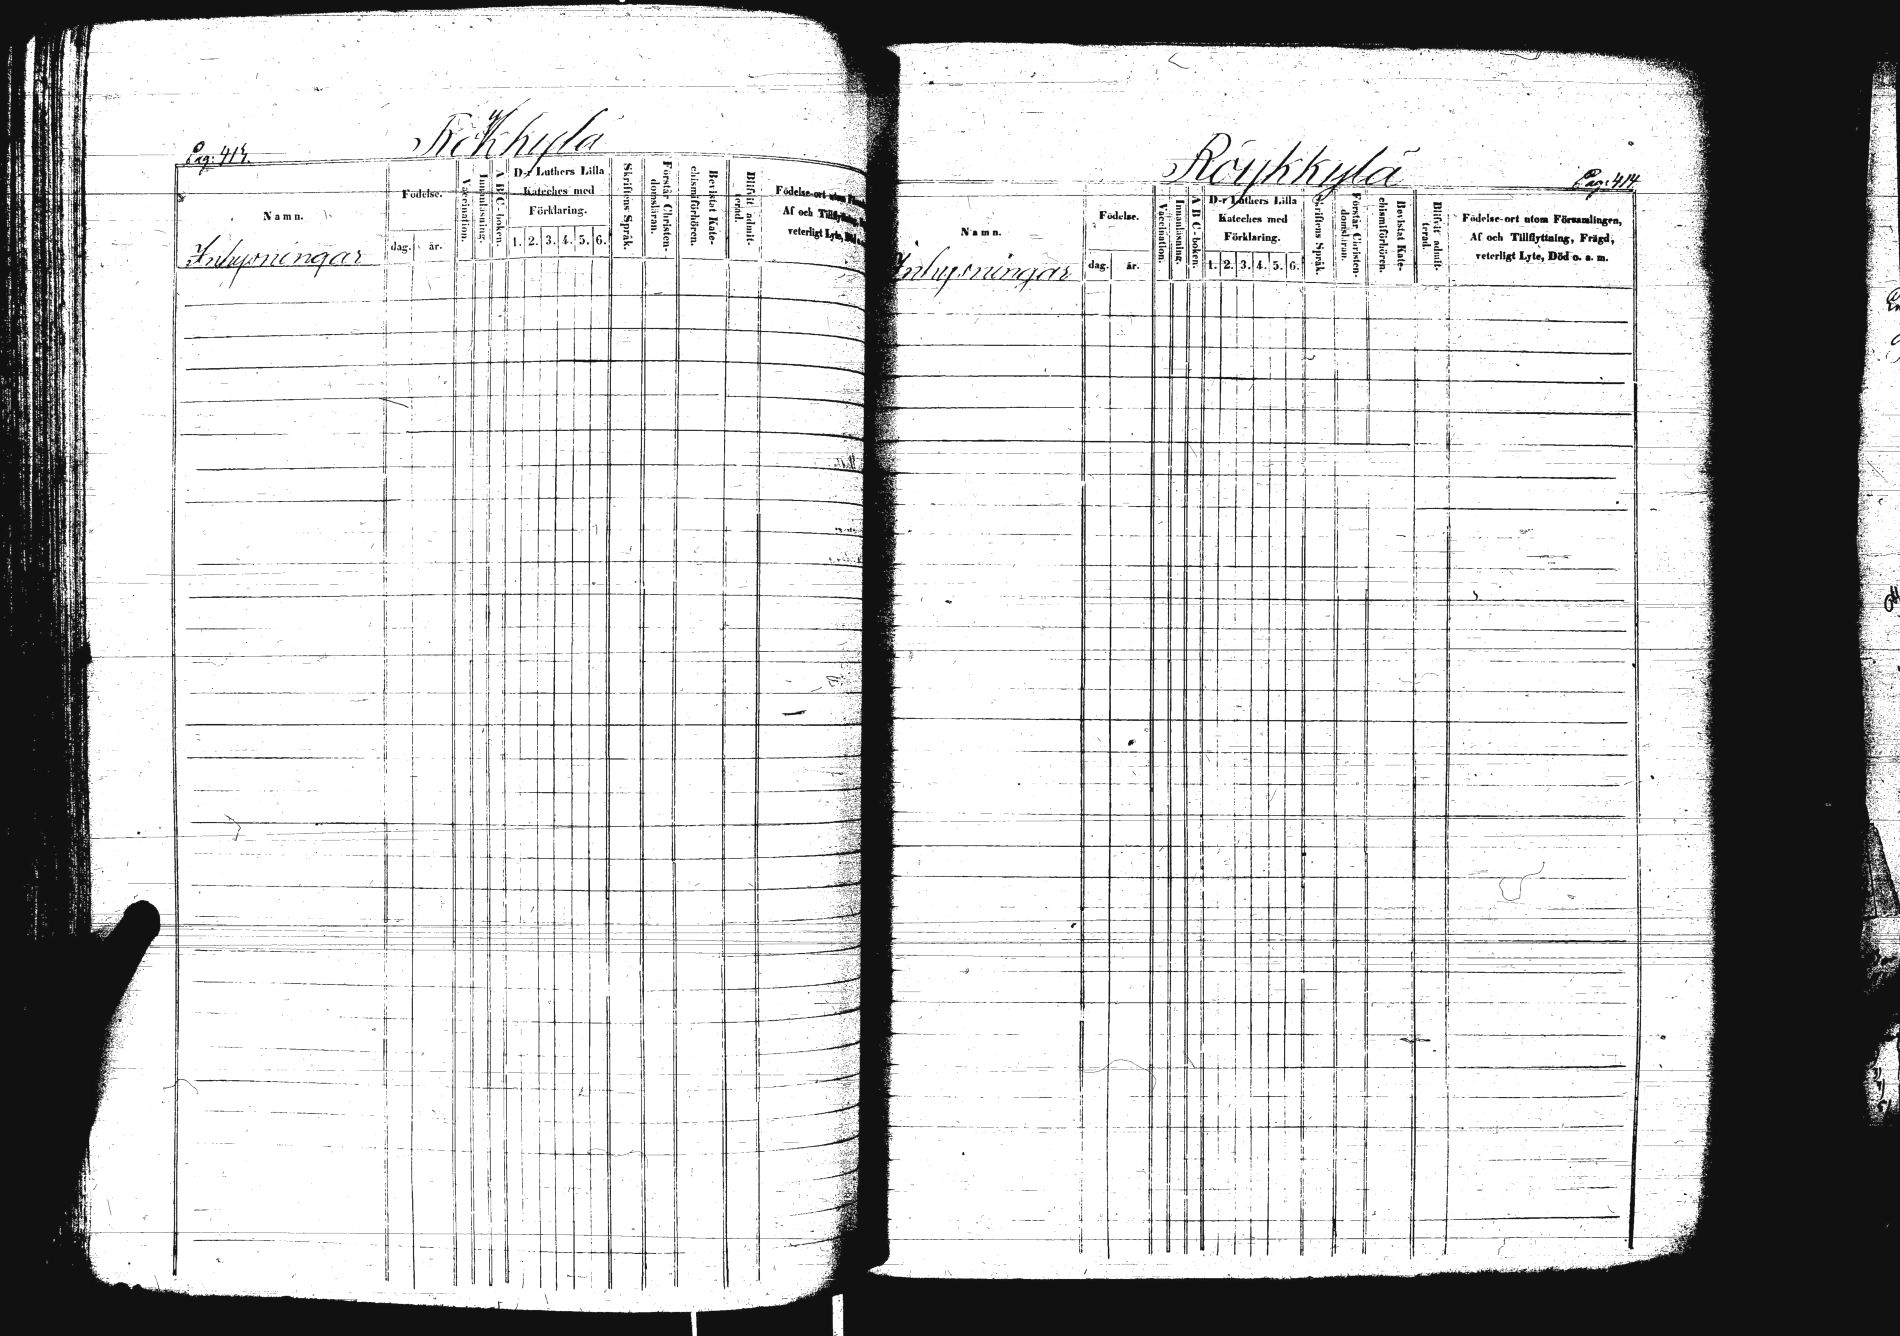 Rökkylä
Pag: 414.
Namn.
Födelse.
dag.
år.
Vaccination.
Innanläsning.
A B C-boken.
D-r Luthers Lilla
Kateches med
Förklaring.
1. 2. 3. 4. 5. 6.
Skriftens Språk.
Förstår Christen-
domsläran.
Bevistat Kate-
chismiförhören.
Blifvit admit-
terad.
Födelse-ort utom
Af och Tillflyttning,
veterligt Lyte, Död
Inhysningar
Röykkylä
Pag: 414
Namn.
Födelse.
dag.
år.
Vaccination.
Innanläsning.
A B C-boken.
D-r Luthers Lilla
Kateches med
Förklaring.
1. 2. 3. 4. 5. 6.
Skriftens Språk.
Förstår Christen-
domsläran.
Bevistat Kate-
chismiförhören.
Blifvit admit-
terad.
Födelse-ort utom Församlingen,
Af och Tillflyttning, Frägd,
veterligt Lyte, Död o. s. m.
Inhysningar